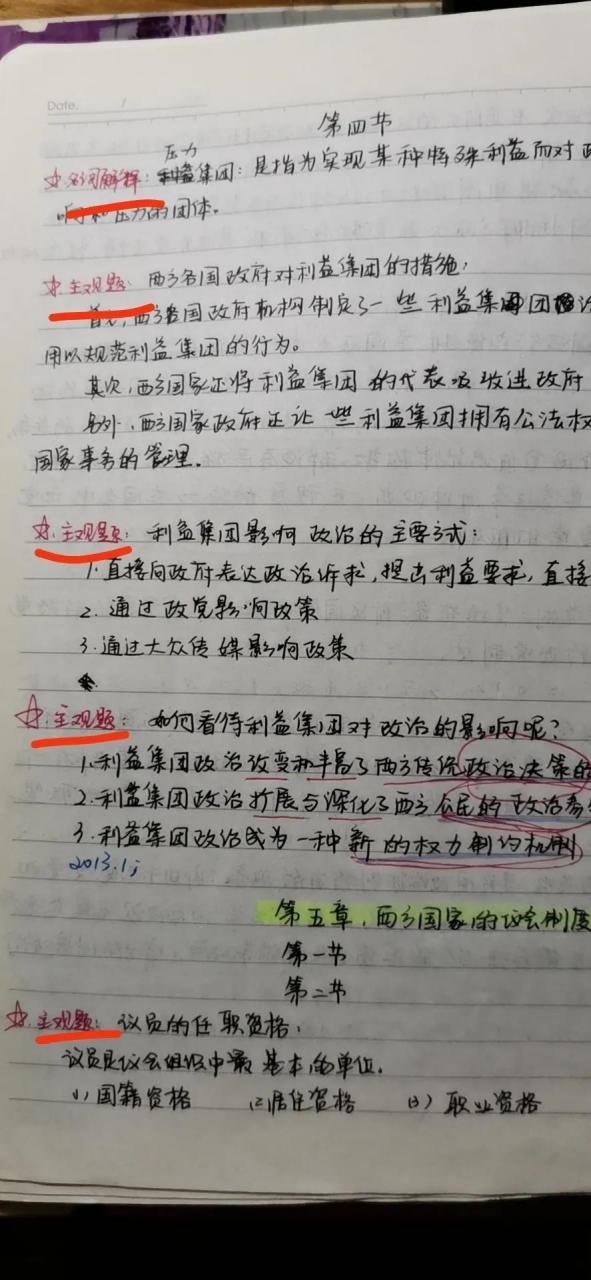 Date. 1
第四节
☆名词解释：压力集团：是指为实现某种特殊利益而对政
响和压力的团体。
☆主观题：西方各国政府对利益集团的措施：
首先，西方各国政府机构制定了一些利益集团法
用以规范利益集团的行为。
其次，西方国家还将利益集团的代表吸收进政府
另外，西方国家政府还让一些利益集团拥有公法权
国家事务的管理。
☆主观题：利益集团影响政治的主要方式：
1.直接向政府表达政治诉求，提出利益要求，直接
2.通过政党影响政策
3.通过大众传媒影响政策
☆主观题：如何看待利益集团对政治的影响呢？
1.利益集团政治改变和丰富了西方传统政治决策的
2.利益集团政治扩展与深化了西方公民的政治参
3.利益集团政治成为一种新的权力制约机制
2013.1；
第五章，西方国家的议会制度
第一节
第二节
☆主观题：议员的任职资格：
议员是议会组织中最基本的单位.
(1)国籍资格 (2)居住资格 (3)职业资格